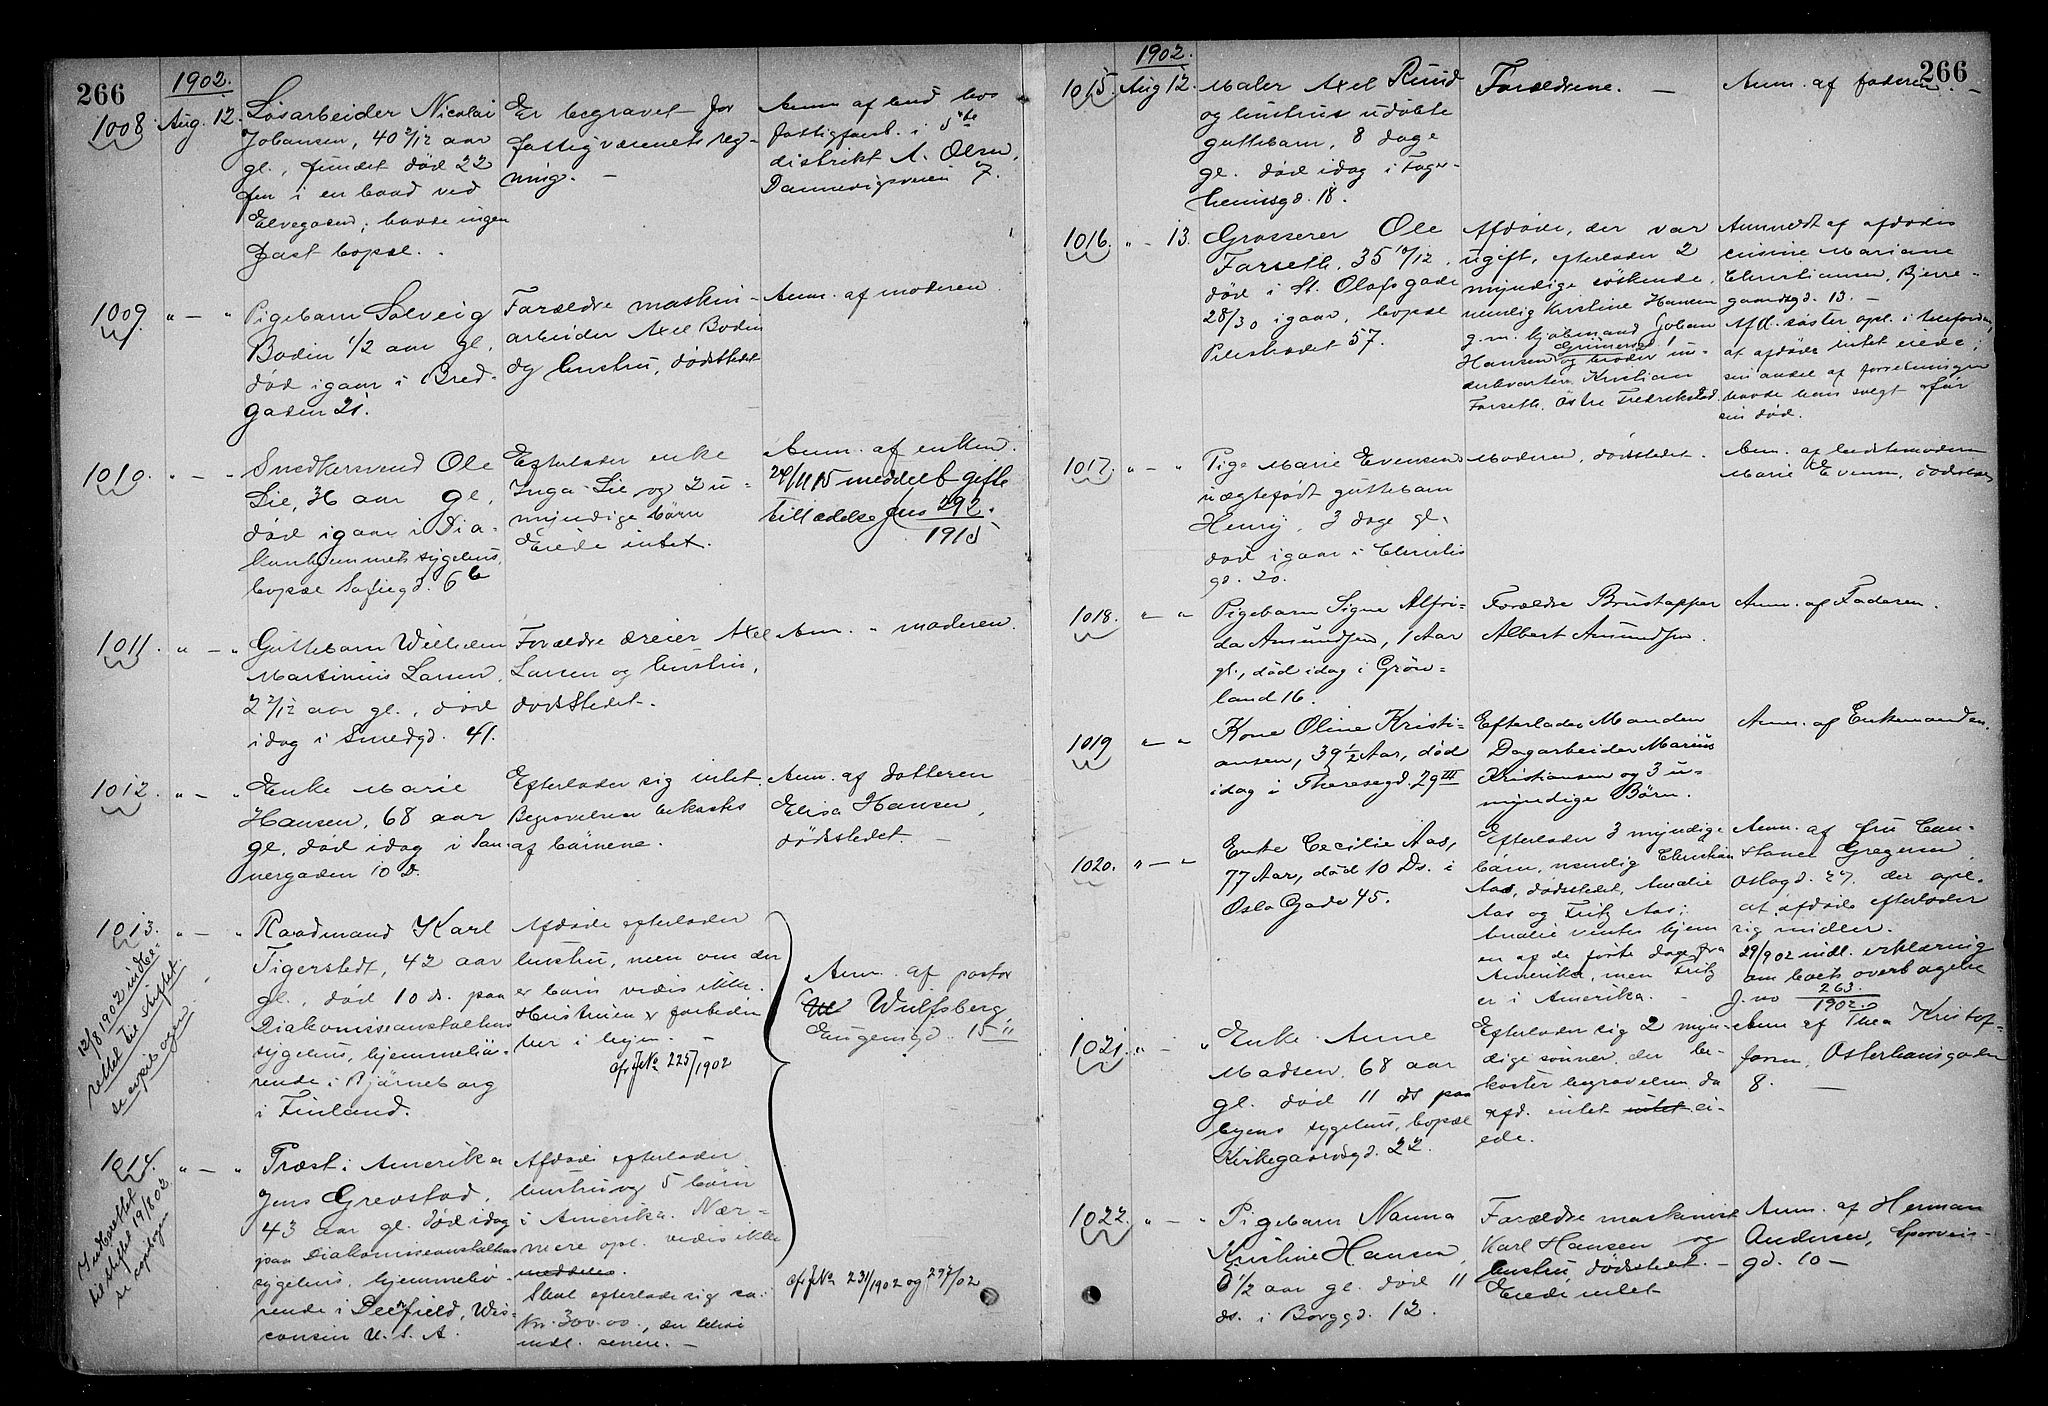 266
1902.
1008. Aug. 12.
Løsarbeider Nicolai
Johansen, 40 2/12 aar
gl., fundet død 22
i en baad ved
Elvegaden; havde ingen
fast bopæl.
Er begravet for
fattigvæsenets reg-
ning. —
Anm. af bud hos
fattigforst. i 5te
distrikt A. Olsen,
Dannevigsveien 7.
1009. " — "
Pigebarn Solveig
Bodin 1/2 aar gl.,
død igaar i Bred-
gaden 21.
Forældre maskin-
arbeider Axel Bodin
og hustru, dødsstedet
Anm. af moderen.
1010. " — "
Snedkersvend Ole
Lie, 34 aar gl.,
død igaar i Dia-
konhjemmets sygehus,
bopæl Sofiegd. 6 b
Efterlader enke
Inga Lie og 2 u-
myndige børn
Eiede intet.
Anm. af enken.
24/11 15 meddelt gifte
tilladelse jno 292.
1915
1011. " — "
Guttebarn Wilhelm
Martinius Larsen,
2 2/12 aar gl., død
idag i Smedgd. 41.
Forældre dreier Axel
Larsen og hustru,
dødsstedet.
Anm. " moderen.
1012. " — "
Enke Marie
Hansen, 68 aar
gl., død idag i San-
nergaden 10 D.
Efterlader sig intet.
Begravelsen bekostes
af børnene.
Anm. af datteren
Elisa Hansen,
dødsstedet. —
1013. " — "
12/8 1902 indbe-
rettet til skiftet
se copibogen.
Raadmand Karl
Tigerstedt, 42 aar
gl., død 10 ds. paa
Diakonisseanstaltens
sygehus, hjemmehø-
rende i Bjørneborg
i Finland.
Afdøde efterlader
hustru, men om der
er børn vides ikke.
Hustruen er forbedin
her i byen. —
cfr. J№ 225/1902
Anm. af pastor
Wulfsberg,
Eugeniegd. 15 II
1014. " — "
Indberettet
til skiftet 19/8 02
se copibogen
Præst i Amerika
Jens Grevstad,
43 aar gl. død idag
paa Diakonisseanstaltens
sygehus, hjemmehø-
rende i Deerfield, Wis-
consin U. S. A.
Afdøde efterlader
hustru og 5 børn
i Amerika. Nær-
mere opl. vides ikke
meddeles.
Skal efterlade sig ca.
Kr. 300.00,
indl. senere. —
cfr J№ 231/1902 og 297/02
266
1902.
1015. Aug 12.
Maler Axel Ruud
og hustrus udøbte
guttebarn, 8 dage
gl. død idag i Fager-
heimsgd. 18.
Forældrene. —
Anm. af faderen. —
1016. " — 13.
Grosserer Ole
Farseth, 35 10/12,
død i St. Olafsgade
28/30 igaar, bopæl
Pilestrædet 57.
Afdøde, der var
ugift, efterlader 2
myndige søskende,
nemlig Kristine Hansen
g. m. kjøbmand Johan
Hansen og broder un-
derkvarterm. Kristian
Farseth, Østre Fredrikstad.
Anmeldt af afdødes
cusine Mariane
Christiansen, Bjerre-
gaardsgd. 13. —
Afd. søster opl. i telefonen,
at afdøde intet eiede;
sin andel af forretningen
havde han solgt før
sin død.
1017. " — "
Pige Marie Evensens
uægtefødt guttebarn
Henry, 3 dage gl.
død igaar i Christies
gd. 20.
Moderen, dødsstedet.
Anm. af bedstemoderen
Marie Evensen, dødsstedet
1018. " — "
Pigebarn Signe Alfri-
da Amundsen, 1 Aar
gl., død idag i Grøn-
land 16.
Forældre Brustapper
Albert Amundsen.
Anm. af Faderen.
1019 " — "
Kone Oline Kristi-
ansen, 39 1/2 Aar, død
idag i Theresegd. 29 III
Efterlader Manden
Dagarbeider Marius
Kristiansen og 3 u-
myndige Børn.
Anm. af Enkemanden.
1020. " — "
Enke Cecilie Aas,
77 Aar, død 10 Ds. i
Oslo Gade 45.
Efterlader 3 myndige
børn, nemlig Christian
Aas, dødsstedet, Amalie
Aas og Fritz Aas;
Amalie ventes hjem
en af de første dage fra
Amerika, men Fritz
er i Amerika. —
Anm. af fru Con-
stance Gregersen,
Oslogd. 27. der opl.
at afdøde efterlader
sig midler.
29/902 indl. erklæring
om boets overtagelse
J. no 263.
1902.
1021. " — "
Enke Anne
Madsen, 68 aar
gl. død 11 ds paa
byens sygehus, bopæl
Kirkegaardsgd. 22.
Efterlader sig 2 myn-
dige sønner, der be-
koster begravelsen, da
afd. intet intet ei-
ede.
Anm af Thea Kristof-
fersen, Osterhausgaden
8. —
1022. " — "
Pigebarn Nanna
Kristine Hansen,
0 1/2 aar gl. død 11
ds. i Borggd. 12.
Forældre maskinist
Karl Hansen og
hustru, dødsstedet. —
Eiede intet
Anm. af Herman
Andersen, Sporveis-
gd. 10 —